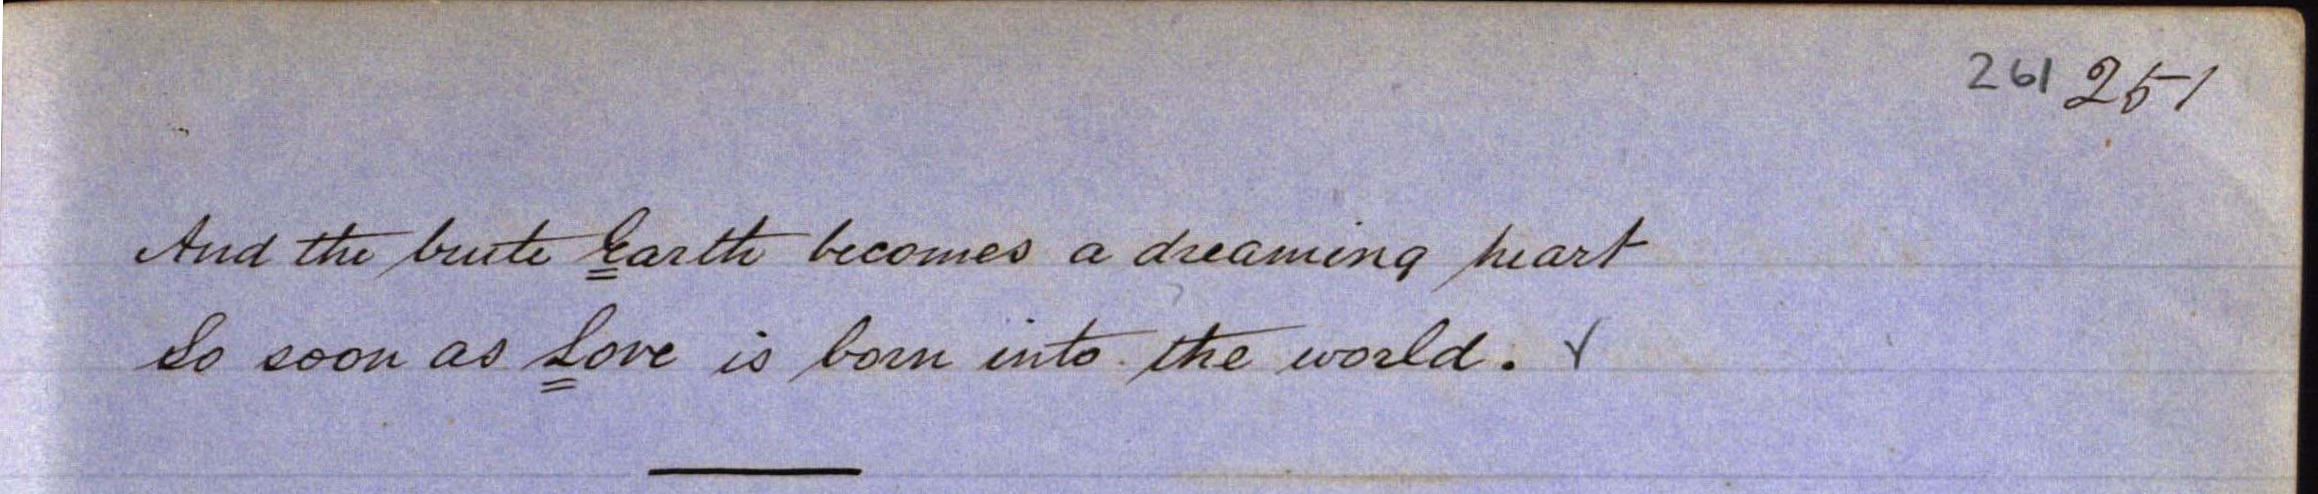 261 251
And the brute Earth becomes a dreaming heart
So soon as Love is born into the world.